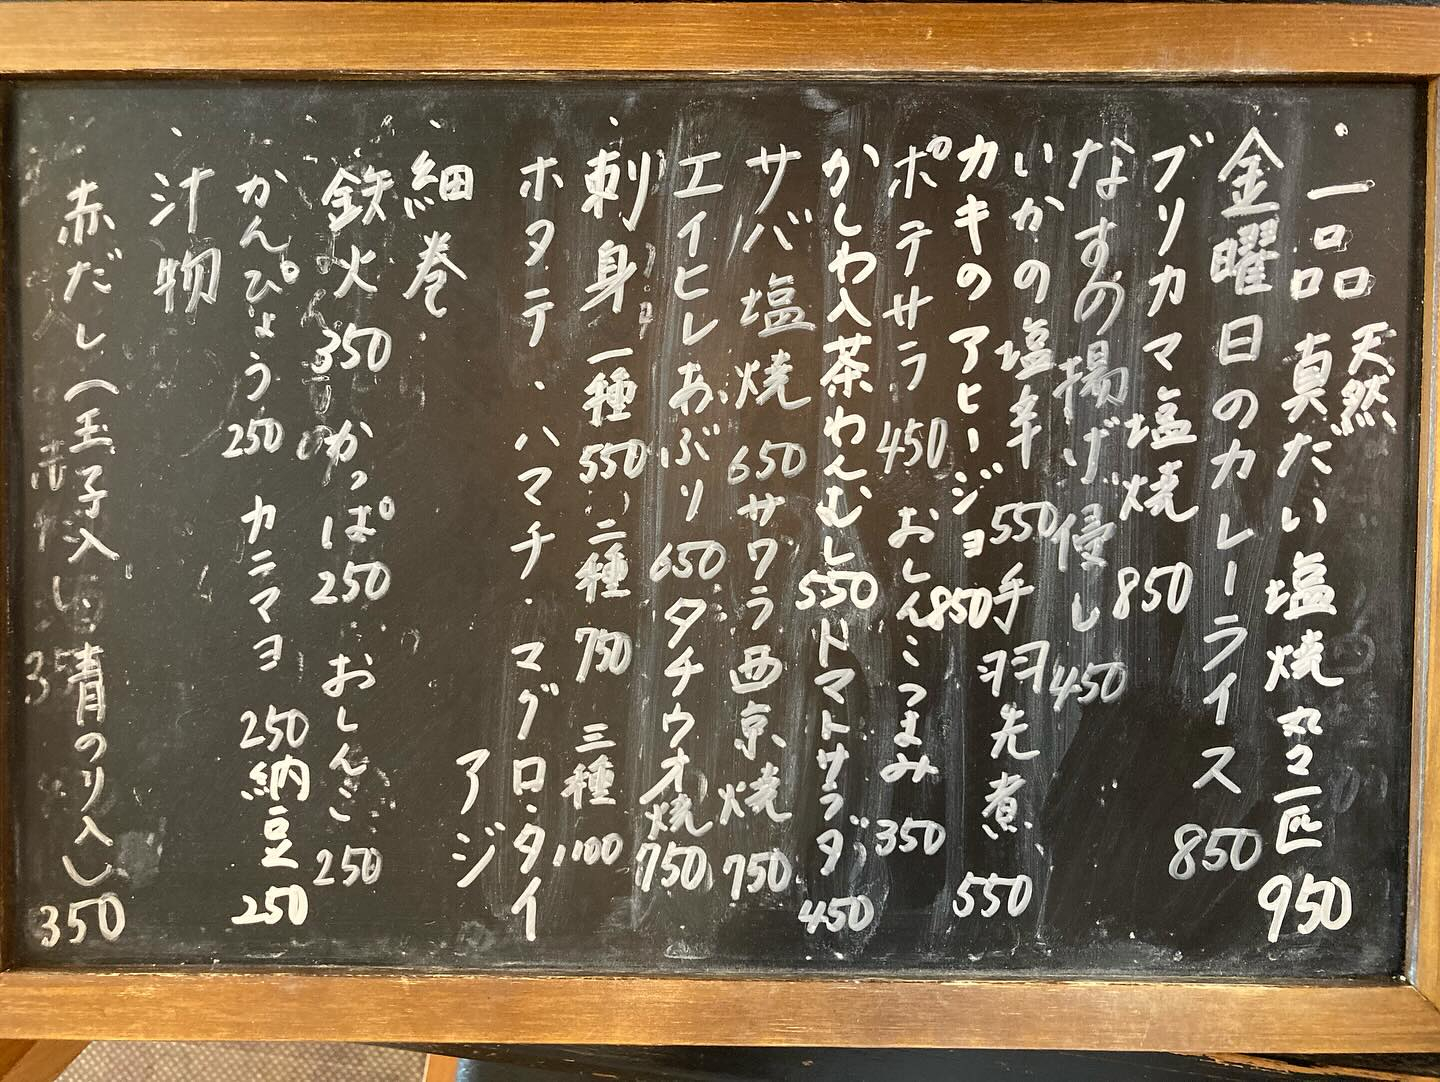 ・一品
天然
真だい塩焼丸々一匹 950
金曜日のカレーライス 850
ブリカマ塩焼 850
なすの揚げ浸し 450
いかの塩辛 550 手羽先煮 550
カキのアヒージョ 850
ポテサラ 450 おしんこつまみ 350
かしわ入茶わんむし 550 トマトサラダ 450
サバ塩焼 650 サワラ西京焼 750
エイヒレあぶり 650 タチウオ焼 750
・刺身 一種 550 二種 750 三種 1100
ホタテ・ハマチ・マグロ・タイ
アジ
・細巻
鉄火 350 かっぱ 250 おしんこ 250
かんぴょう 250 カニマヨ 250 納豆 250
・汁物
赤だし(玉子入り、青のり入し 350